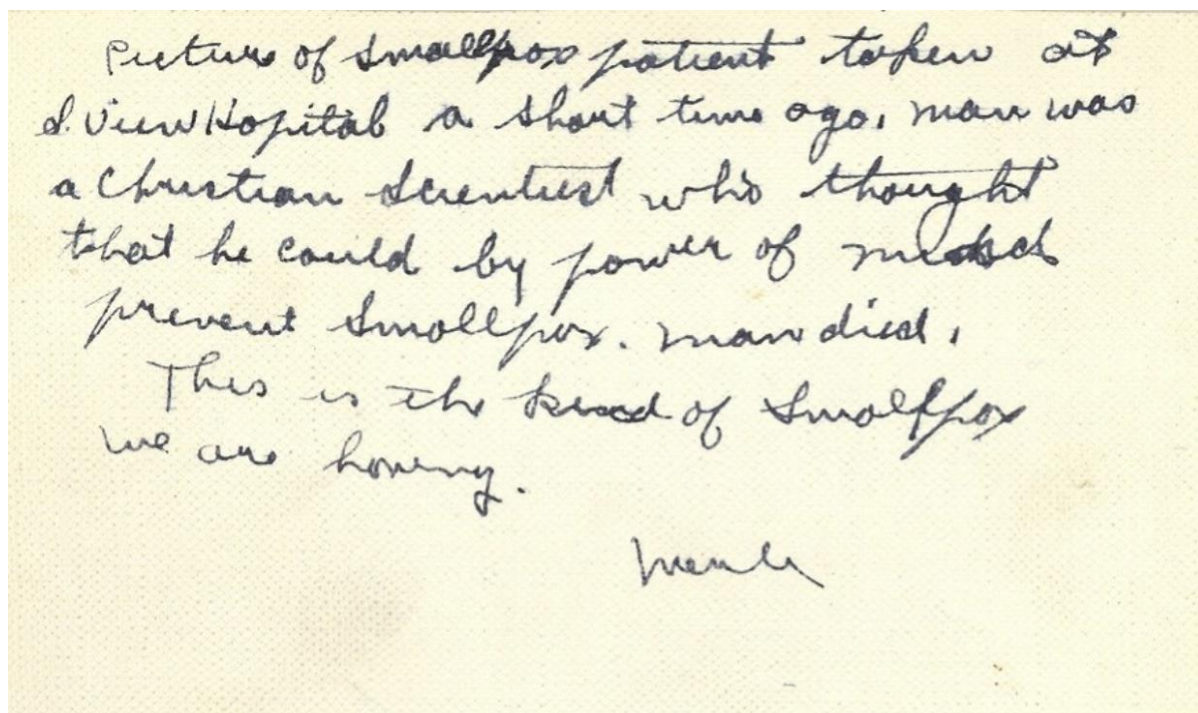 Picture of smallpox patient taken at
S. View Hopital a short time ago, man was
a Christian Scientist who thought
that he could by power of mind
prevent smallpox. man died.
This is the kind of smallpox
we are having.